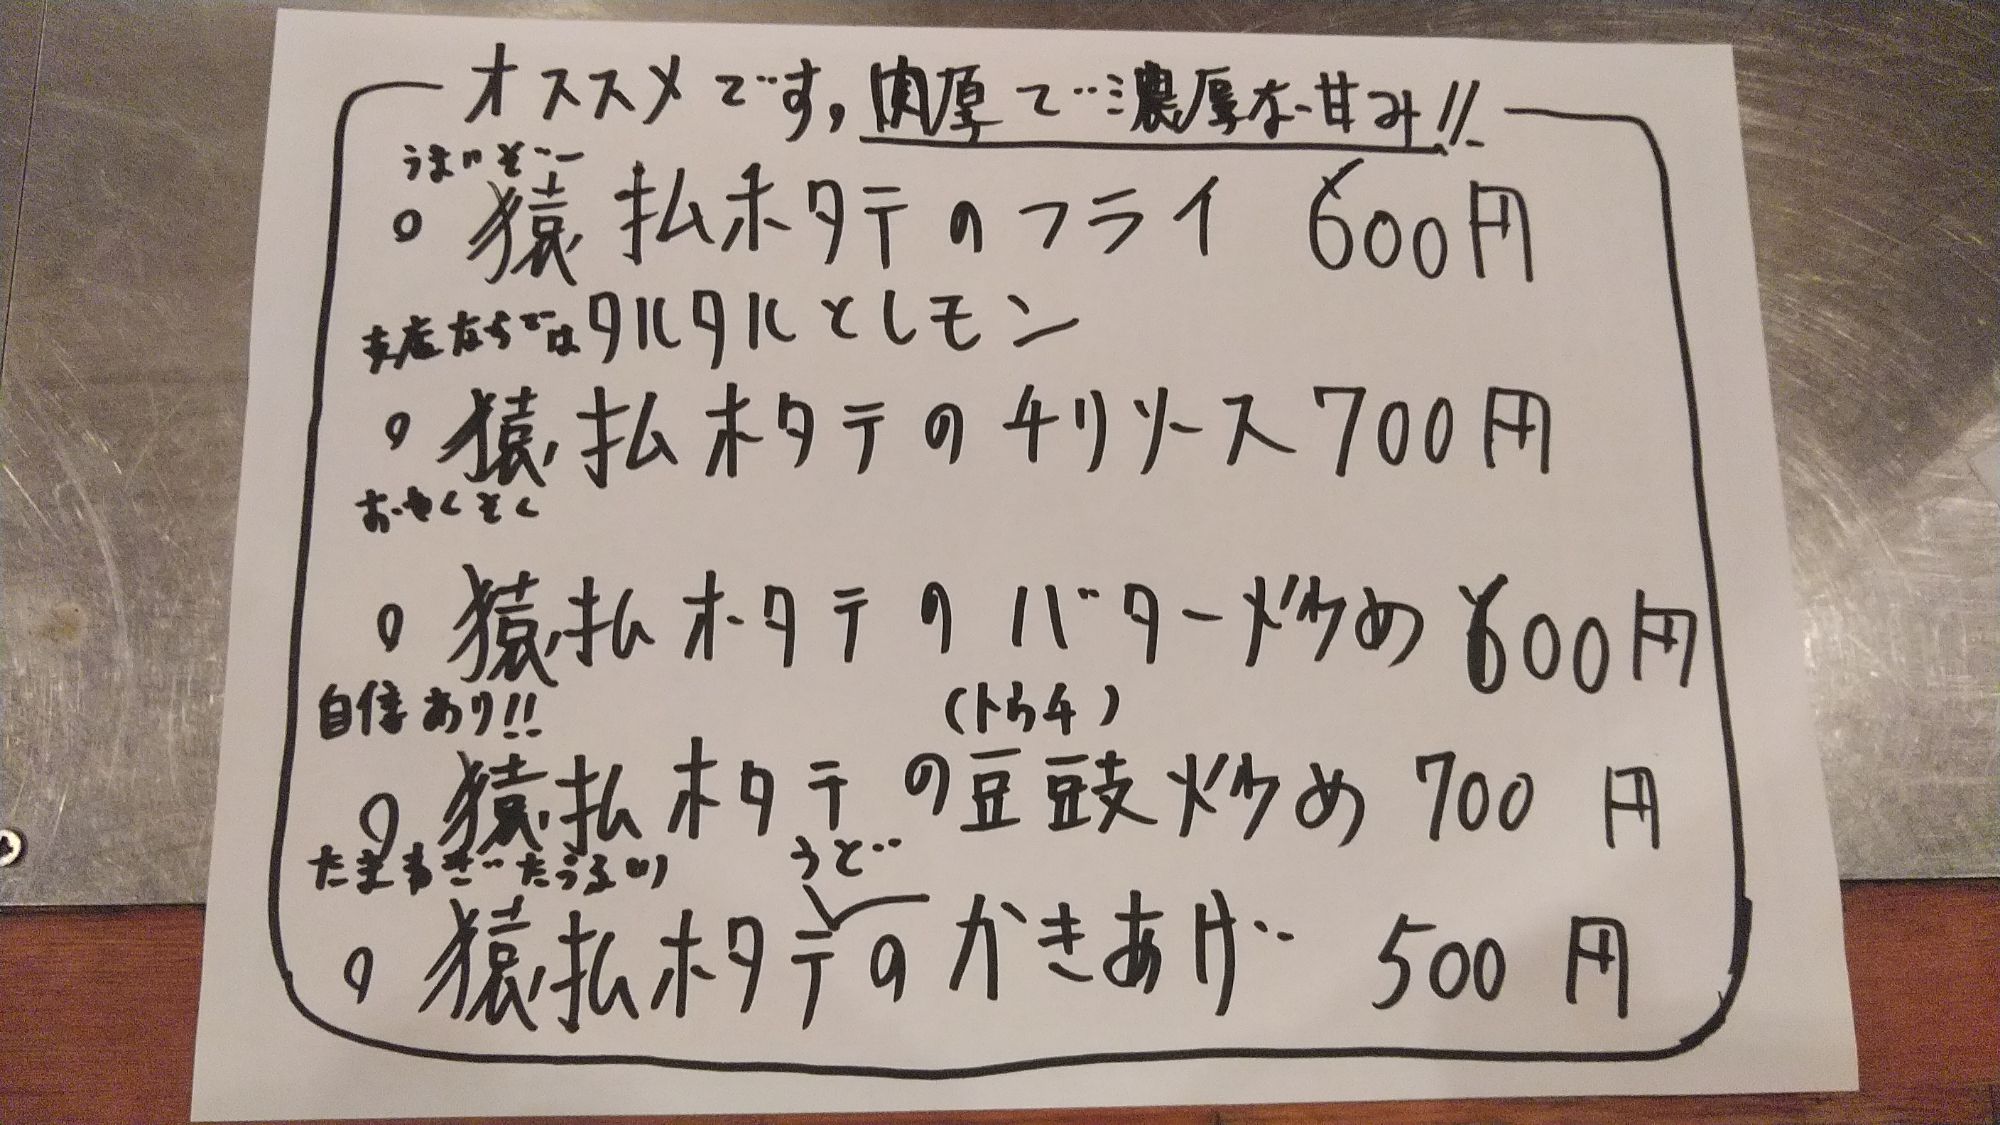 オススメです，肉厚で濃厚な甘み!!
うまいぞー
○ 猿払ホタテのフライ 600円
タルタルとレモン
支店ならでは
○ 猿払ホタテのチリソース 700円
おやくそく
○ 猿払ホタテのバター炒め 600円
自信あり!!
(トウチ)
○ 猿払ホタテの豆豉炒め 700円
うど
○ 猿払ホタテのかきあげ 500円